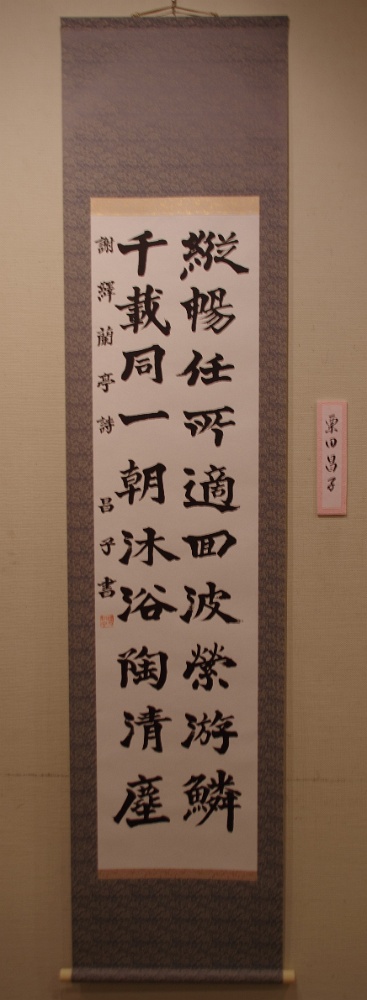 縦暢任所適回波縈游鱗
千載同一朝沐浴陶清塵
謝繹蘭亭詩 昌子書
粟田昌子